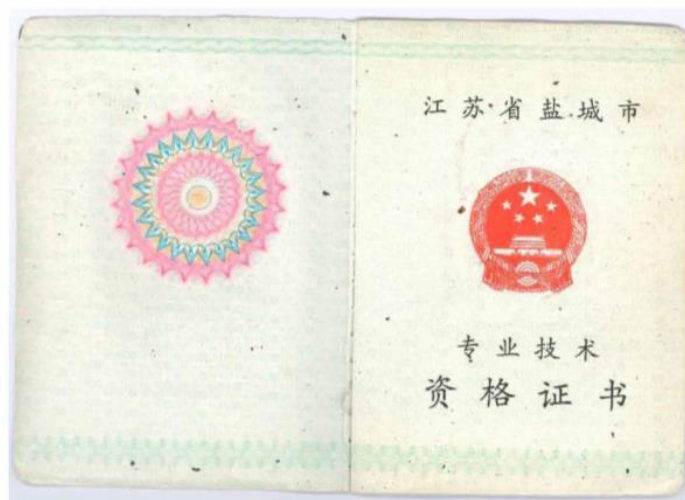 江苏省盐城市
专业技术
资格证书